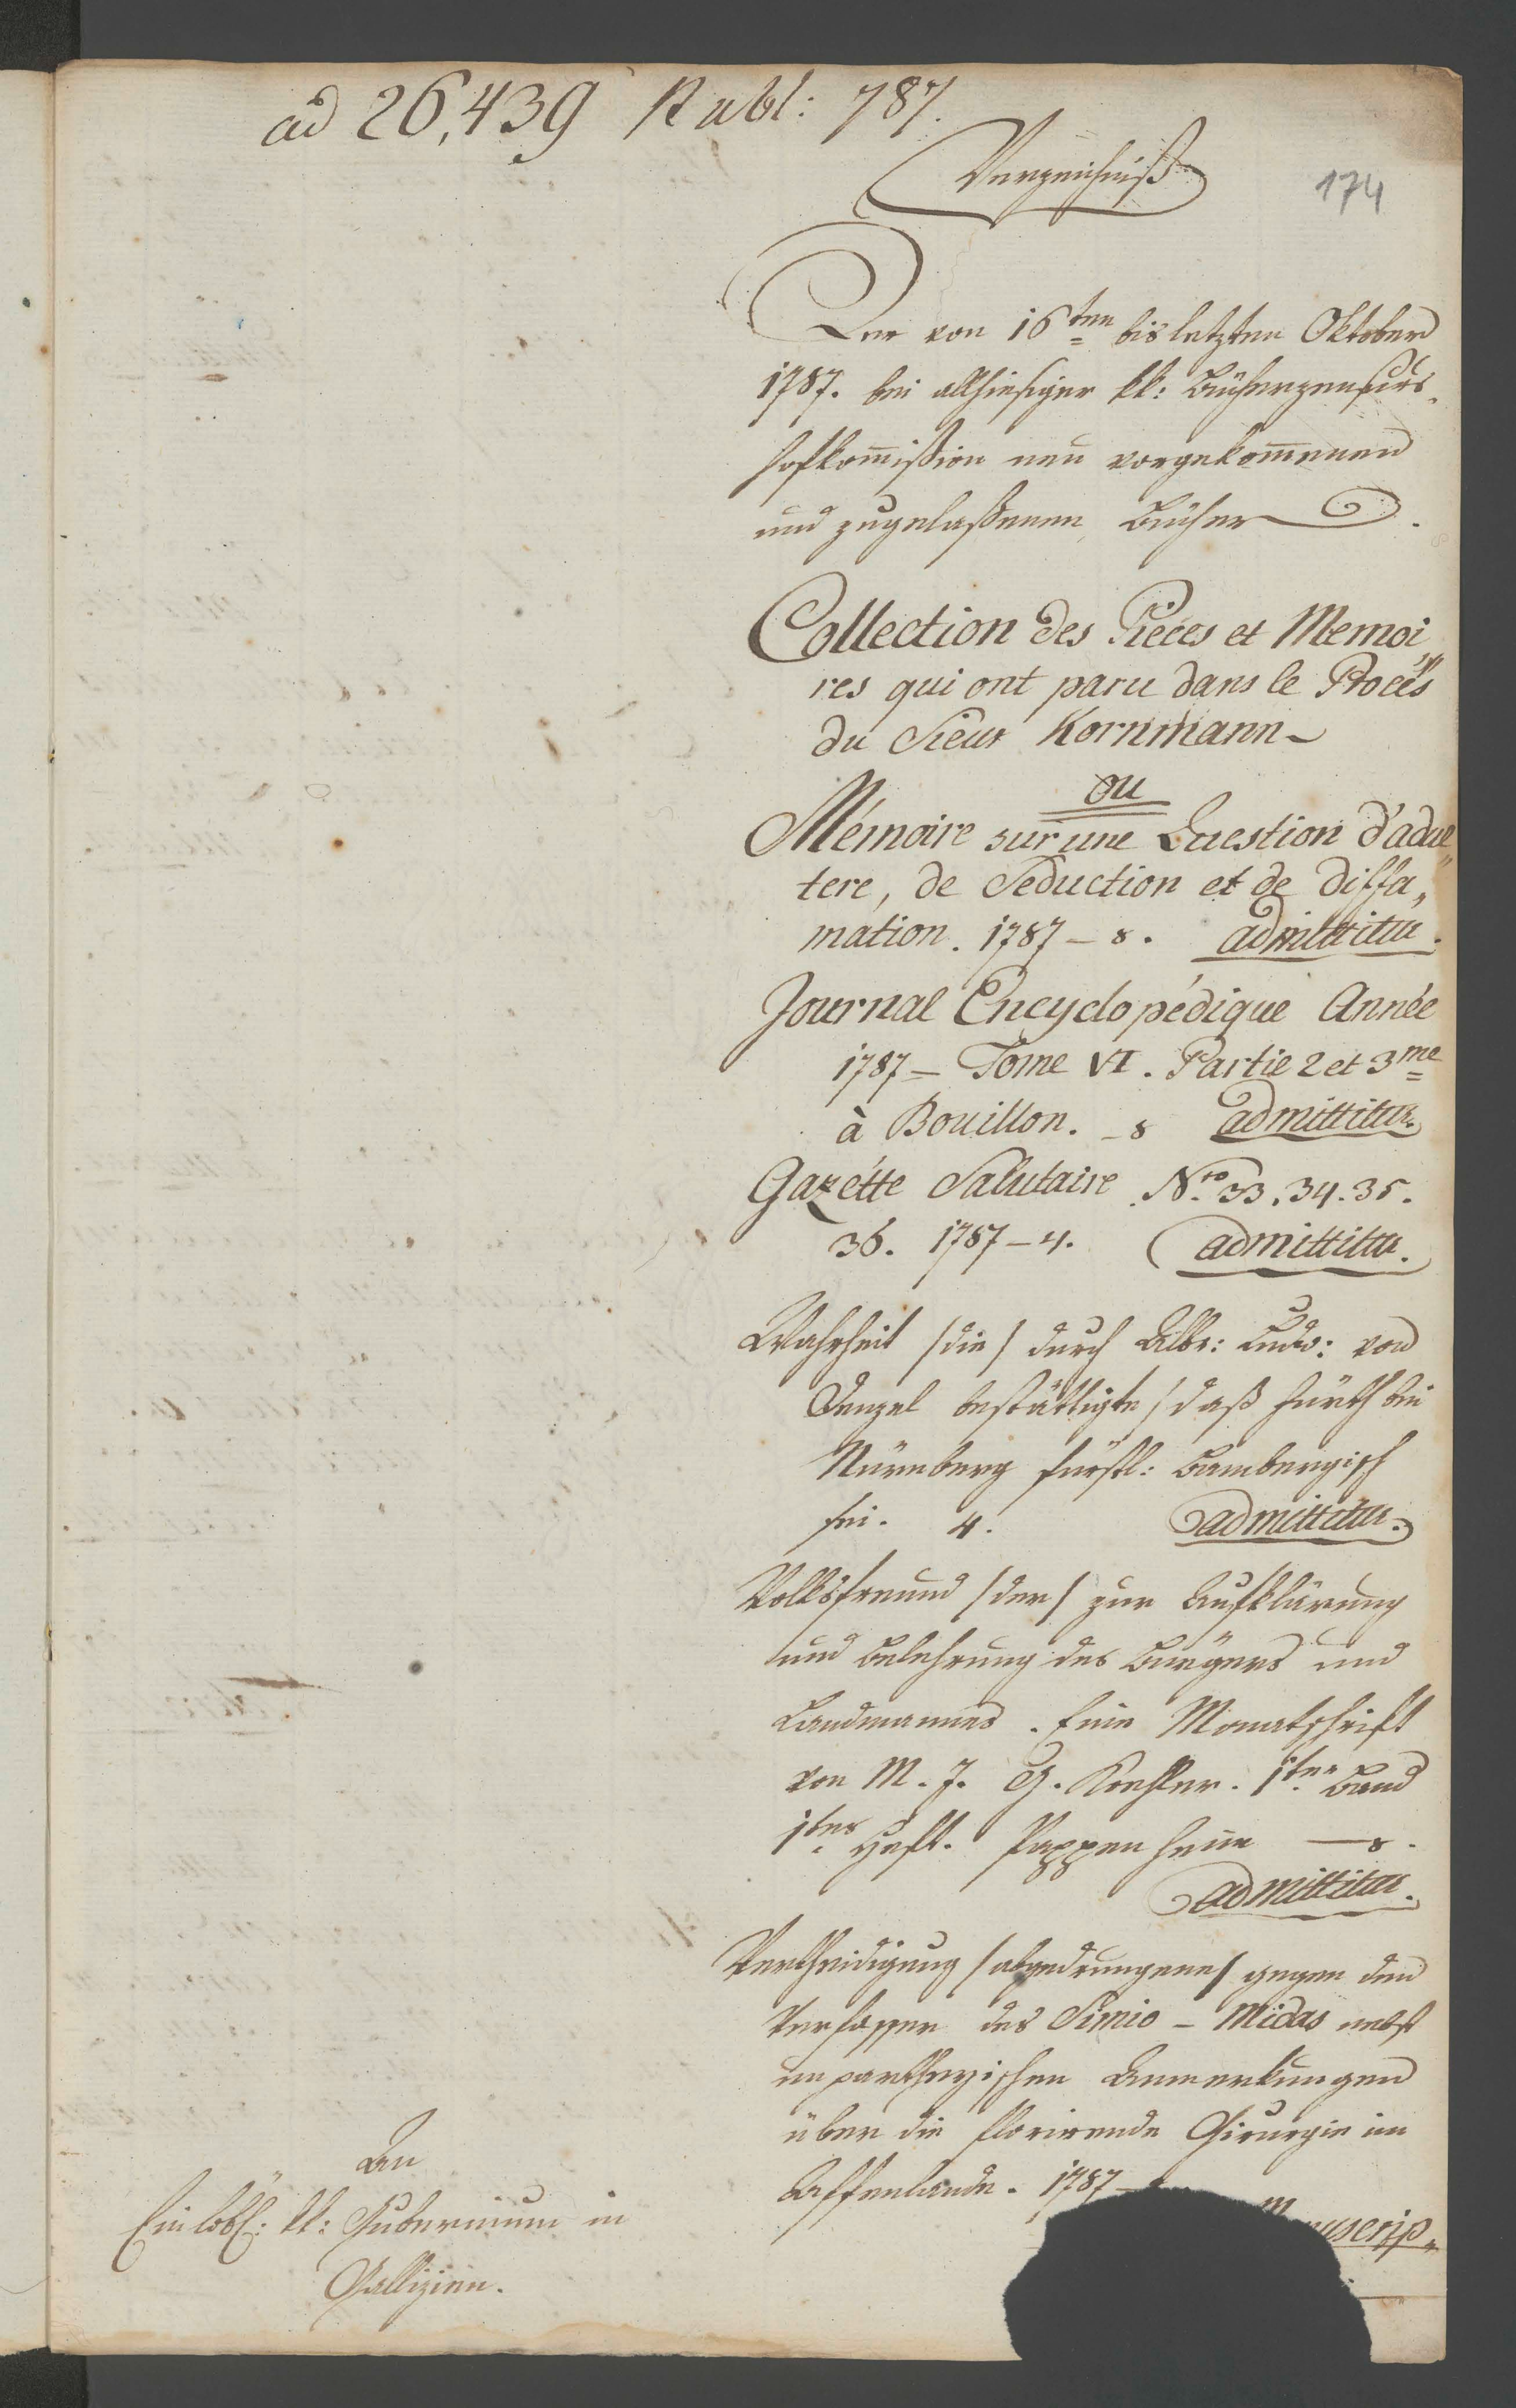 ad 26,439 Publ: 787.
174
Verzeichniß
Der von 16ten bis letzten Oktober
1787. bei allhiesiger kk: Bücherzensurs„
hofkom̄ißion neu vorgekom̄enen
und zugelaßenen Bücher.
Collection des Pieces et Memoi„
res qui ont paru dans le Procès
du Sieur Kornmann
ou
Mémoire sur une Question d'adul„
tere, de Seduction et de diffa„
mation. 1787 – 8. admittitur.
Journal Encyclopédique Année
1787 – Tome VI. Partie 2 et 3me
à Bouillon. – 8 admittitur.
Gazétte Salutaire Nro 33. 34. 35.
36. 1787 – 4. admittitur.
Wahrheit /die/ durch Albr: Ludw: von
bestättigte / daß Fürth bei
Nürnberg fürstl: Bambergisch
sei. 4. admittitur.
Volksfreund /der/ zur Aufklärung
und Belehrung des Bürgers und
Landmannes. Eine Monatschrift
von M. J. G. 1ter Band
1tes Heft. Pappenheim – 8.
admittitur.
Vertheidigung /abgedrungene/ gegen den
Verfasser des Simio – Midas nebst
unpartheyischen Anmerkungen
über die florirende Chirurgie im
Affenlande. 1787 –
nuscrip„
An
Ein löbl: kk: Gubernium in
Gallizien.